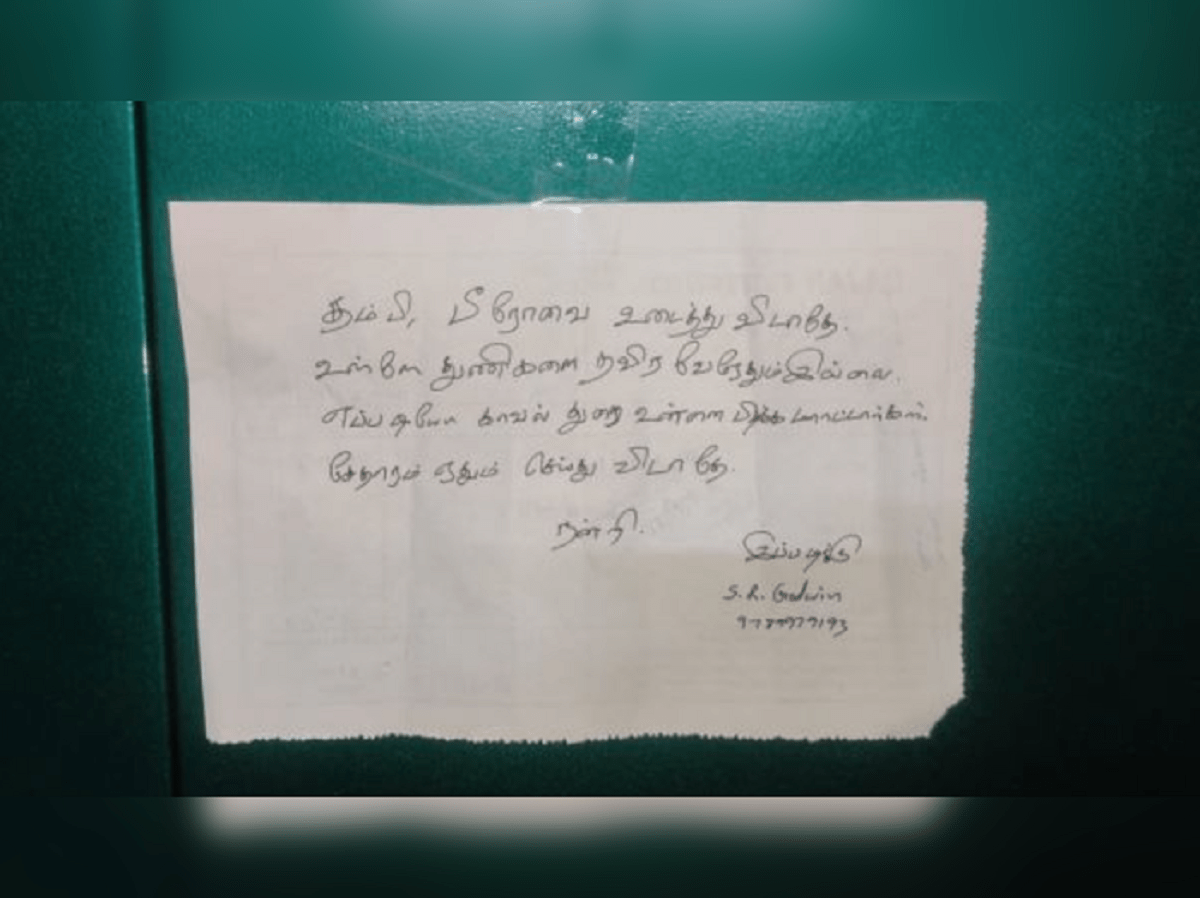 தம்பி, பீரோவை உடைத்து விடாதே.
உள்ளே துணிகளை தவிர வேறேதும் இல்லை.
எப்படியோ காவல் துறை உன்னை பிடிக்க மாட்டார்கள்.
சேதாரம் ஏதும் செய்து விடாதே.
நன்றி.
இப்படிக்கு
S. R. Godwin